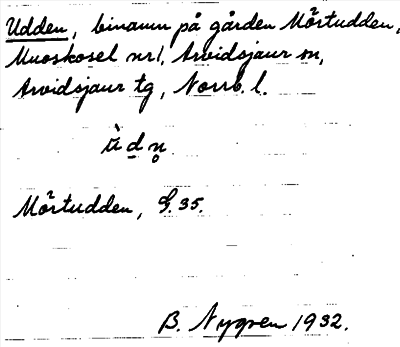 Udden, binamn på gården Mörtudden,
Muoskosel nr 1, Arvidsjaur sn,
Arvidsjaur tg, Norrb. l.
Mörtudden, G. 35.
B. Nygren 1932.